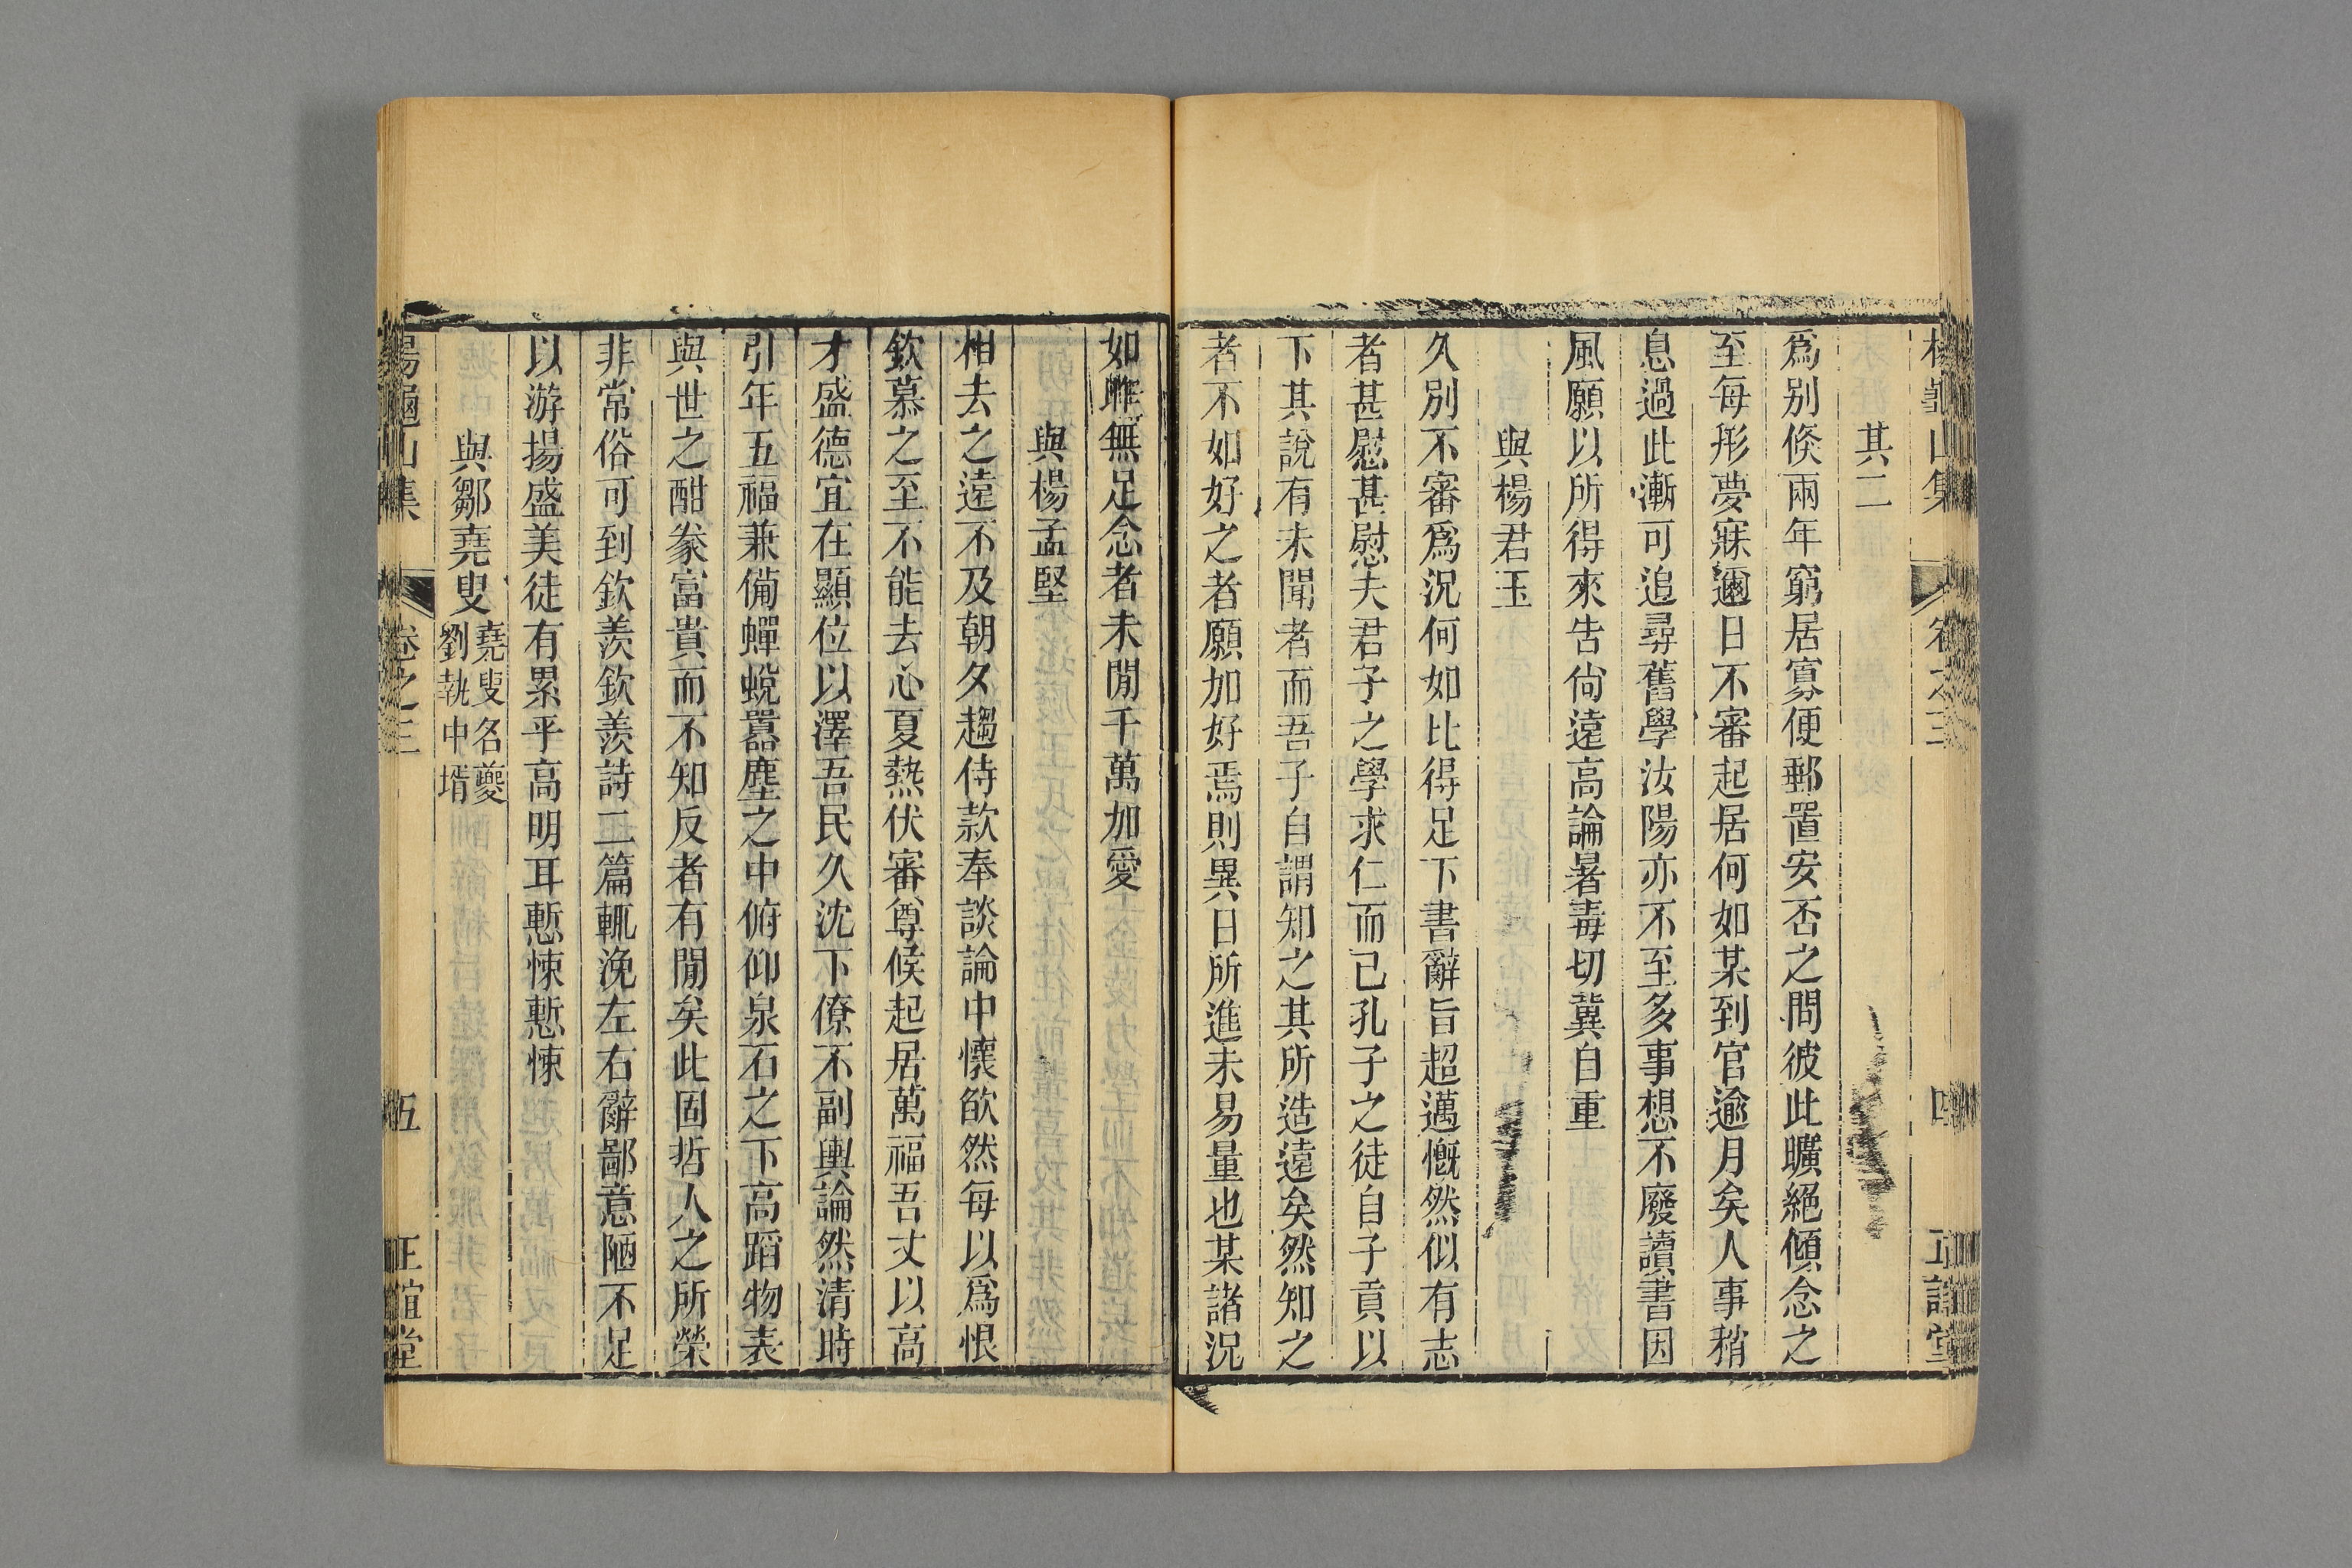 楊龜山集 卷之三 四 正誼堂
其二
爲别倏兩年窮居寡便郵置安否之問彼此曠絕傾念之
至每形夢寐邇日不審起居何如某到官逾月矣人事稍
息過此漸可追尋舊學汝陽亦不至多事想不廢讀書因
風願以所得來告尙遠高論暑毒切冀自重
與楊君玉
久别不審爲況何如比得足下書辭旨超邁慨然似有志
者甚慰甚慰夫君子之學求仁而已孔子之徒自子貢以
下其說有未聞者而吾子自謂知之其所造遠矣然知之
者不如好之者願加好焉則異日所進未易量也某諸況
如昨無足念者未閒千萬加愛
與楊孟堅
相去之遠不及朝夕趨侍款奉談論中懷欿然每以爲恨
欽慕之至不能去心夏熱伏審尊候起居萬福吾丈以高
才盛德宜在顯位以澤吾民久沈下僚不副輿論然清時
引年五福兼備蟬蛻囂塵之中俯仰泉石之下高蹈物表
與世之酣豢富貴而不知反者有閒矣此固哲人之所榮
非常俗可到欽羨欽羨詩二篇輒浼左右辭鄙意陋不足
以游揚盛美徒有累乎高明耳慙悚慙悚
與鄒堯叟 堯叟名夔劉執中壻
楊龜山集 卷之三 五 正誼堂